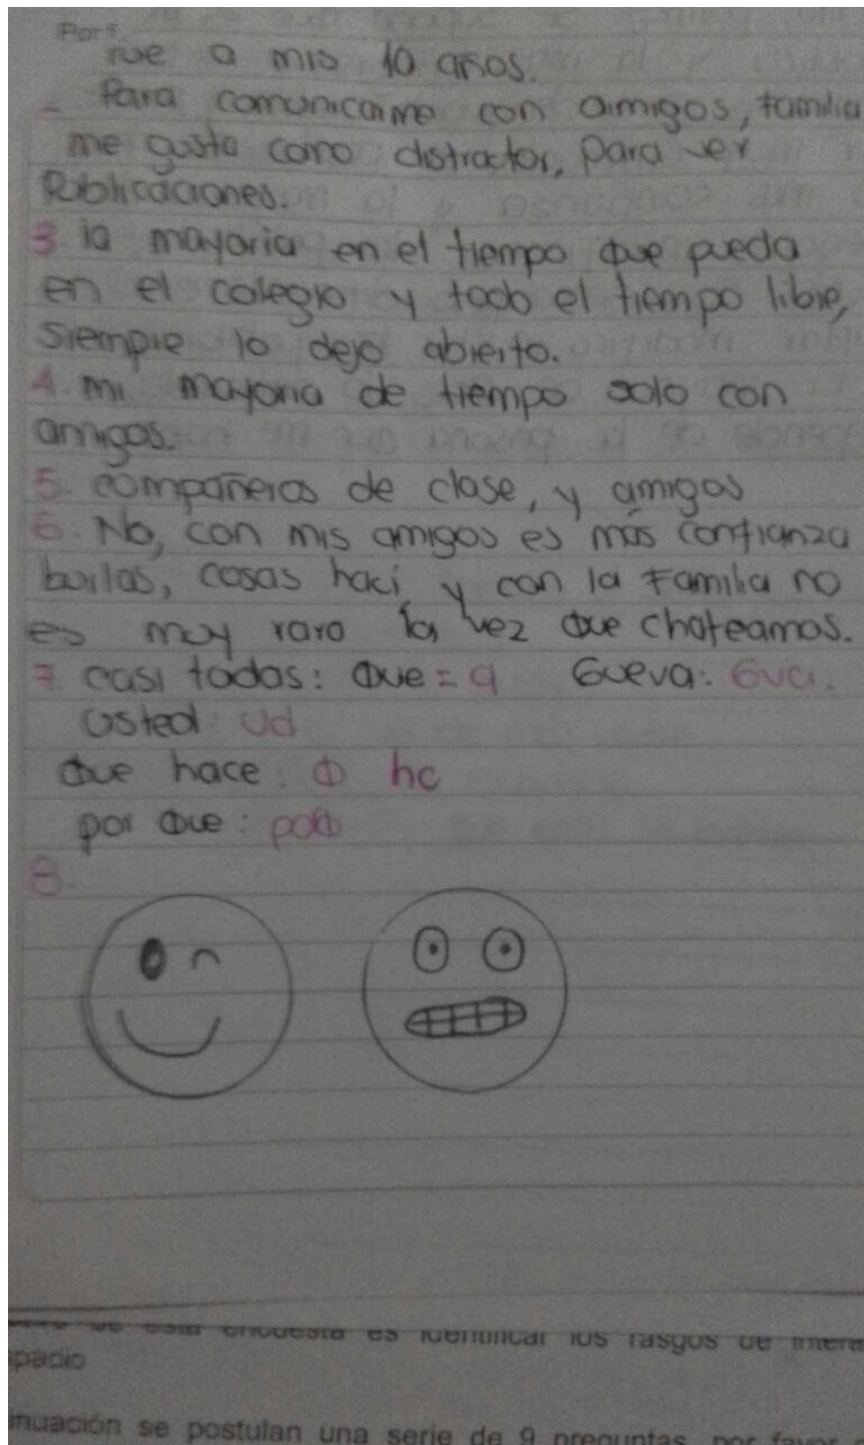 Por
fue a mis 10 años.
Para comunicarme con amigos, familia
me gusta como distractor, para ver
Publicaciones.
3 la mayoria en el tiempo que pueda
en el colegio y todo el tiempo libre,
siempre lo dejo abierto.
4. mi mayoria de tiempo solo con
amigos.
5. compañeros de clase, y amigos
6. No, con mis amigos es más confianza
burlas, cosas haci y con la familia no
es muy raro la vez que chateamos.
7. casi todas: que = q Gueva: Gva.
usted: Ud
que hace: q hc
por que: porq
8.
de esta encuesta es identificar los rasgos de
spacio
inuación se postulan una serie de 9 preguntas, por favor